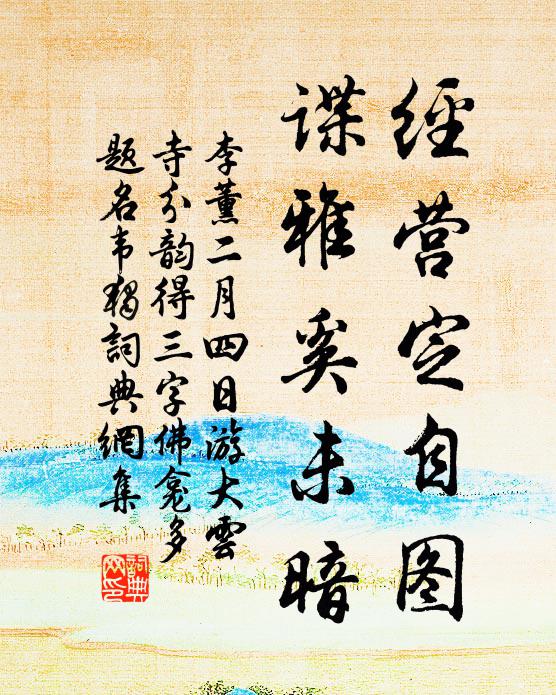 經营定自图
谍雅奚未暗
李薰二月四日游大雲
寺分韵得三字佛龛多
题名韦獨詞典網集
詞典网印